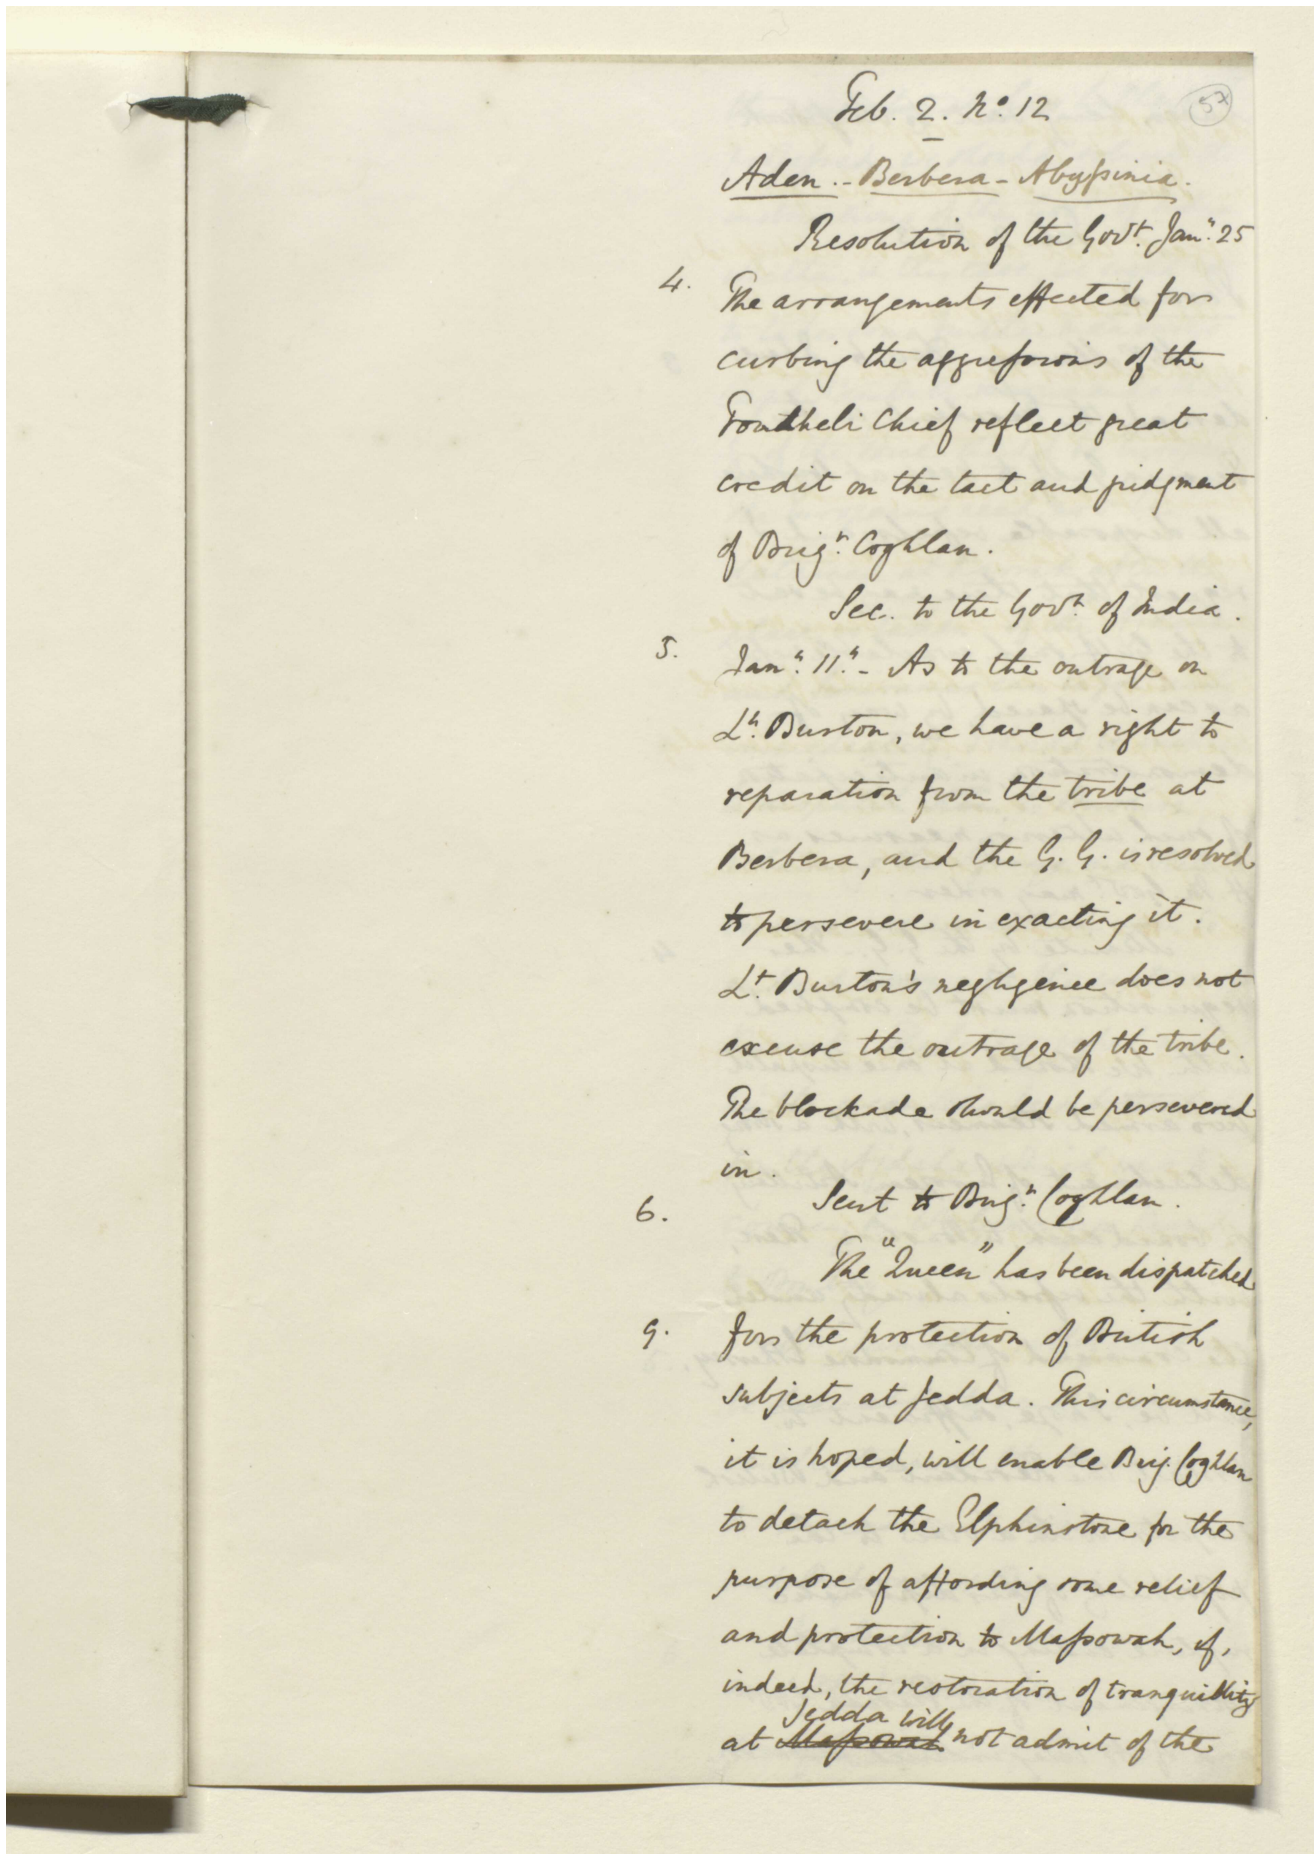 Feb. 2. No. 12
57
Aden. - Berbera - Abyssinia.
Resolution of the Govt. Jany. 25
4. The arrangements effected for
curbing the aggressions of the
Foudtheli Chief reflect great
credit on the tact and judgment
of Brigr. Coghlan.
Sec. to the Govt. of India.
5. Jany. 11. - As to the outrage on
Lt. Burton, we have a right to
reparation from the tribe at
Berbera, and the G. G. is resolved
to persevere in exacting it.
Lt. Burton's negligence does not
excuse the outrage of the tribe.
The blockade should be persevered
in.
6. Sent to Brigr. Coghlan.
The "Queen" has been dispatched
9. for the protection of British
subjects at Jedda. This circumstance,
it is hoped, will enable Brig. Coghlan
to detach the Elphinstone for the
purpose of affording some relief
and protection to Massowah, if,
indeed, the restoration of tranquillity
Jedda will
at Massowah not admit of the